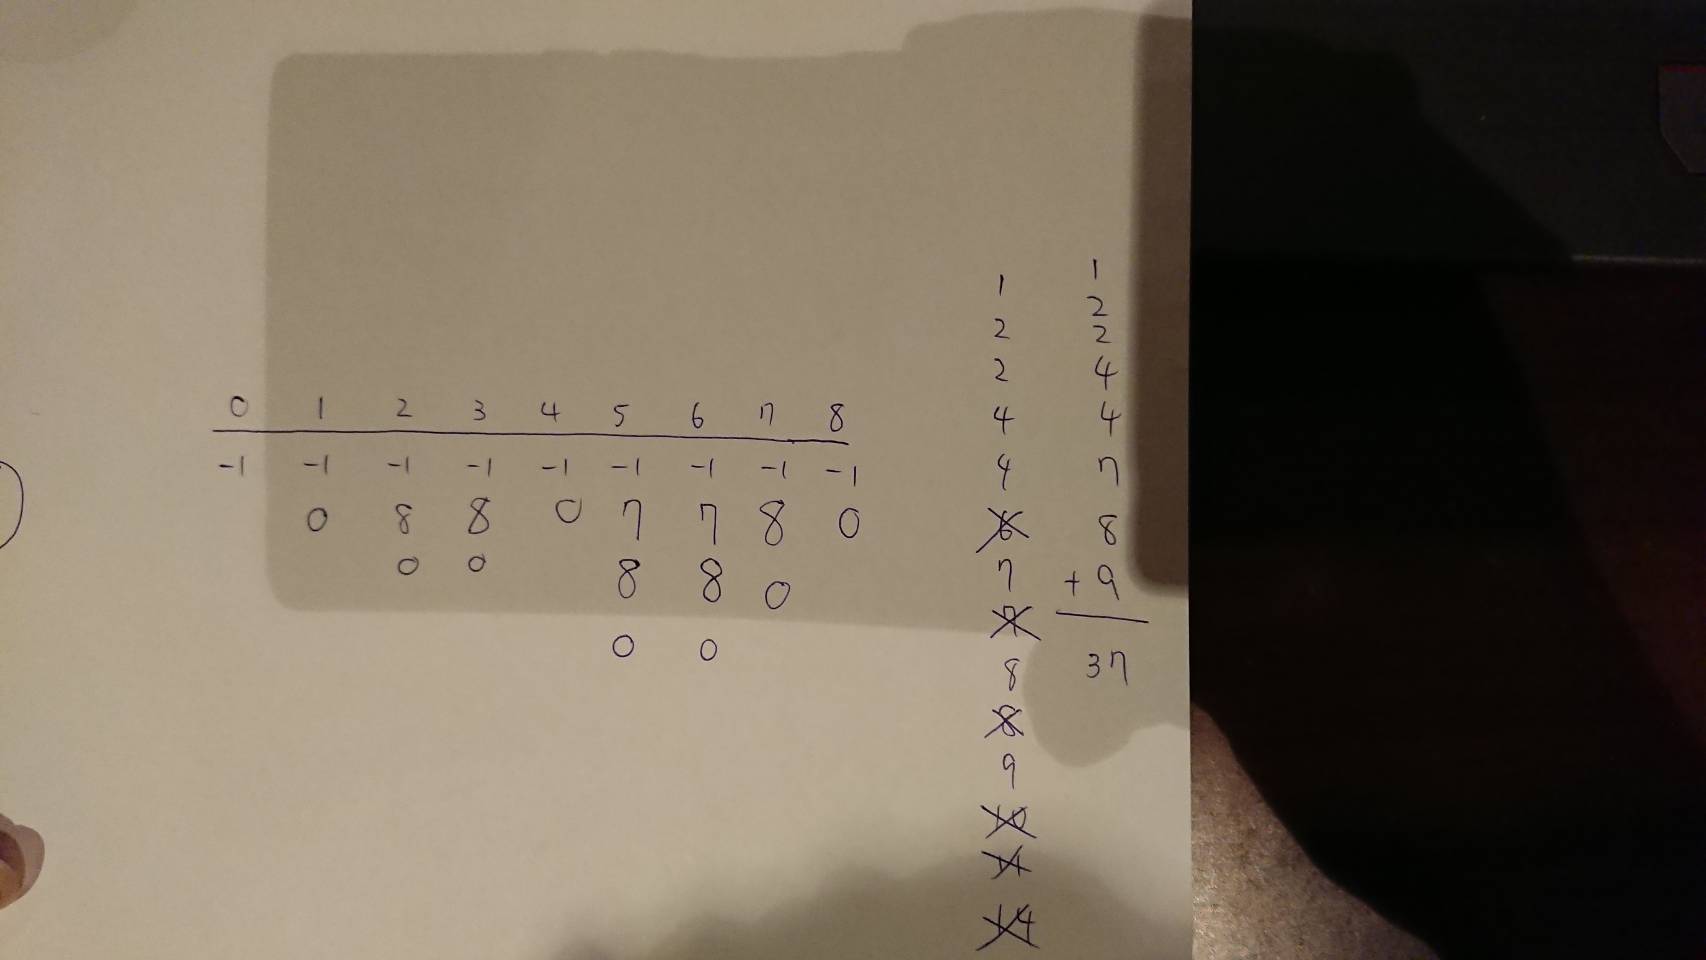 0 1 2 3 4 5 6 7 8
-1 -1 -1 -1 -1 -1 -1 -1 -1
0 8 8 0 7 7 8 0
0 0 8 8 0
0 0
1
2
2
4
4
6
7
7
8
8
9
1
2
2
4
4
7
8
+ 9
37